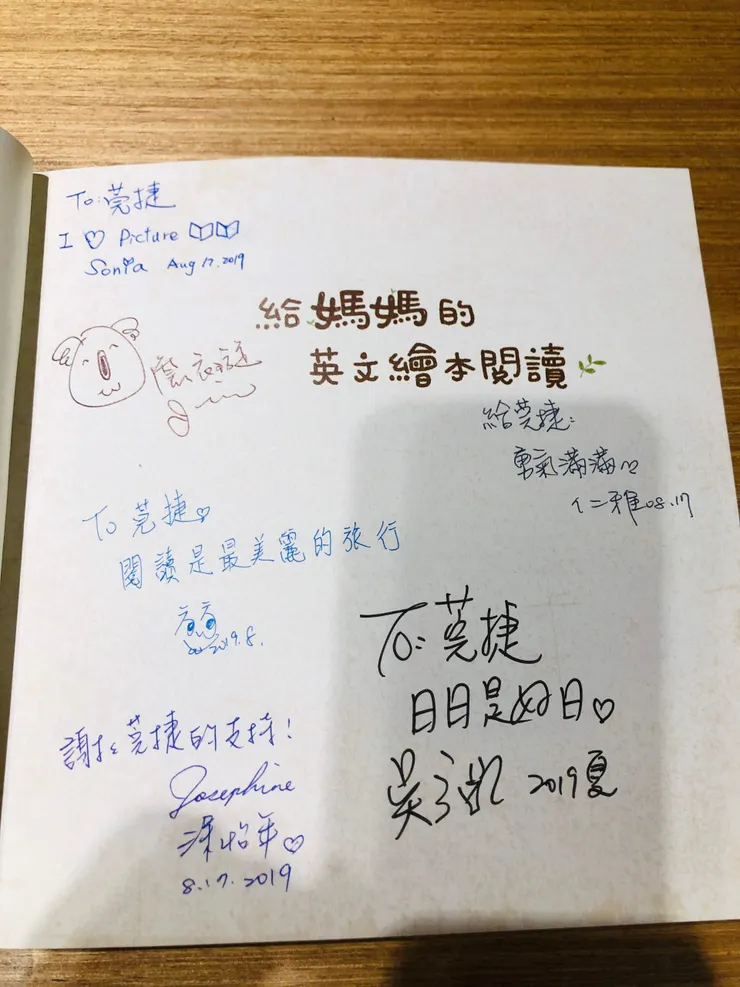 To: 莞捷
I ♡ Picture
Sonia Aug 17. 2019
給媽媽的
英文繪本閱讀
給莞捷:
勇氣滿滿
仁雅 08.17
To 莞捷♡
閱讀是最美麗的旅行
2019.8.
To: 莞捷
日日是好日♡
2019夏
謝謝莞捷的支持!
Josephine
怡年♡
8.17.2019